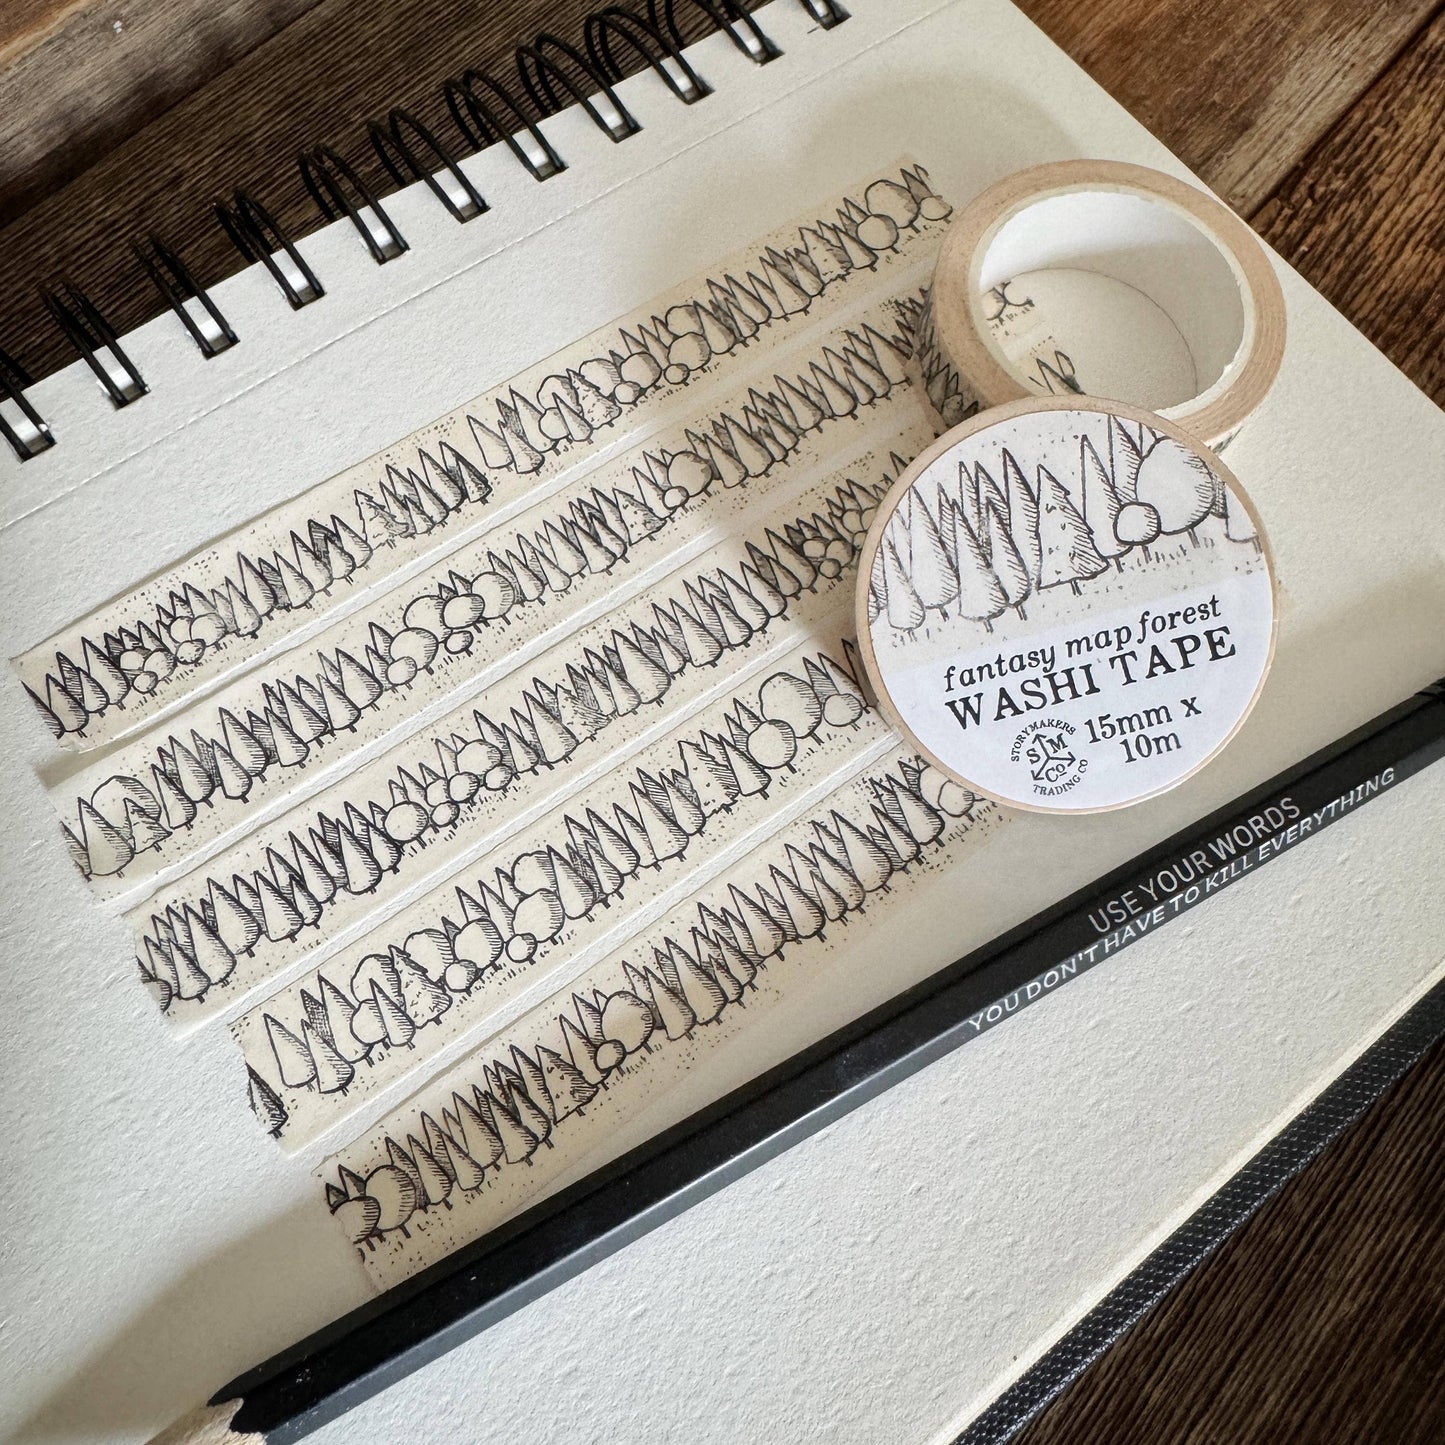 fantasy map forest
WASHI TAPE
STORYMAKERS
S M
Co
TRADING CO
15mm x
10m
USE YOUR WORDS
YOU DON'T HAVE TO KILL EVERYTHING